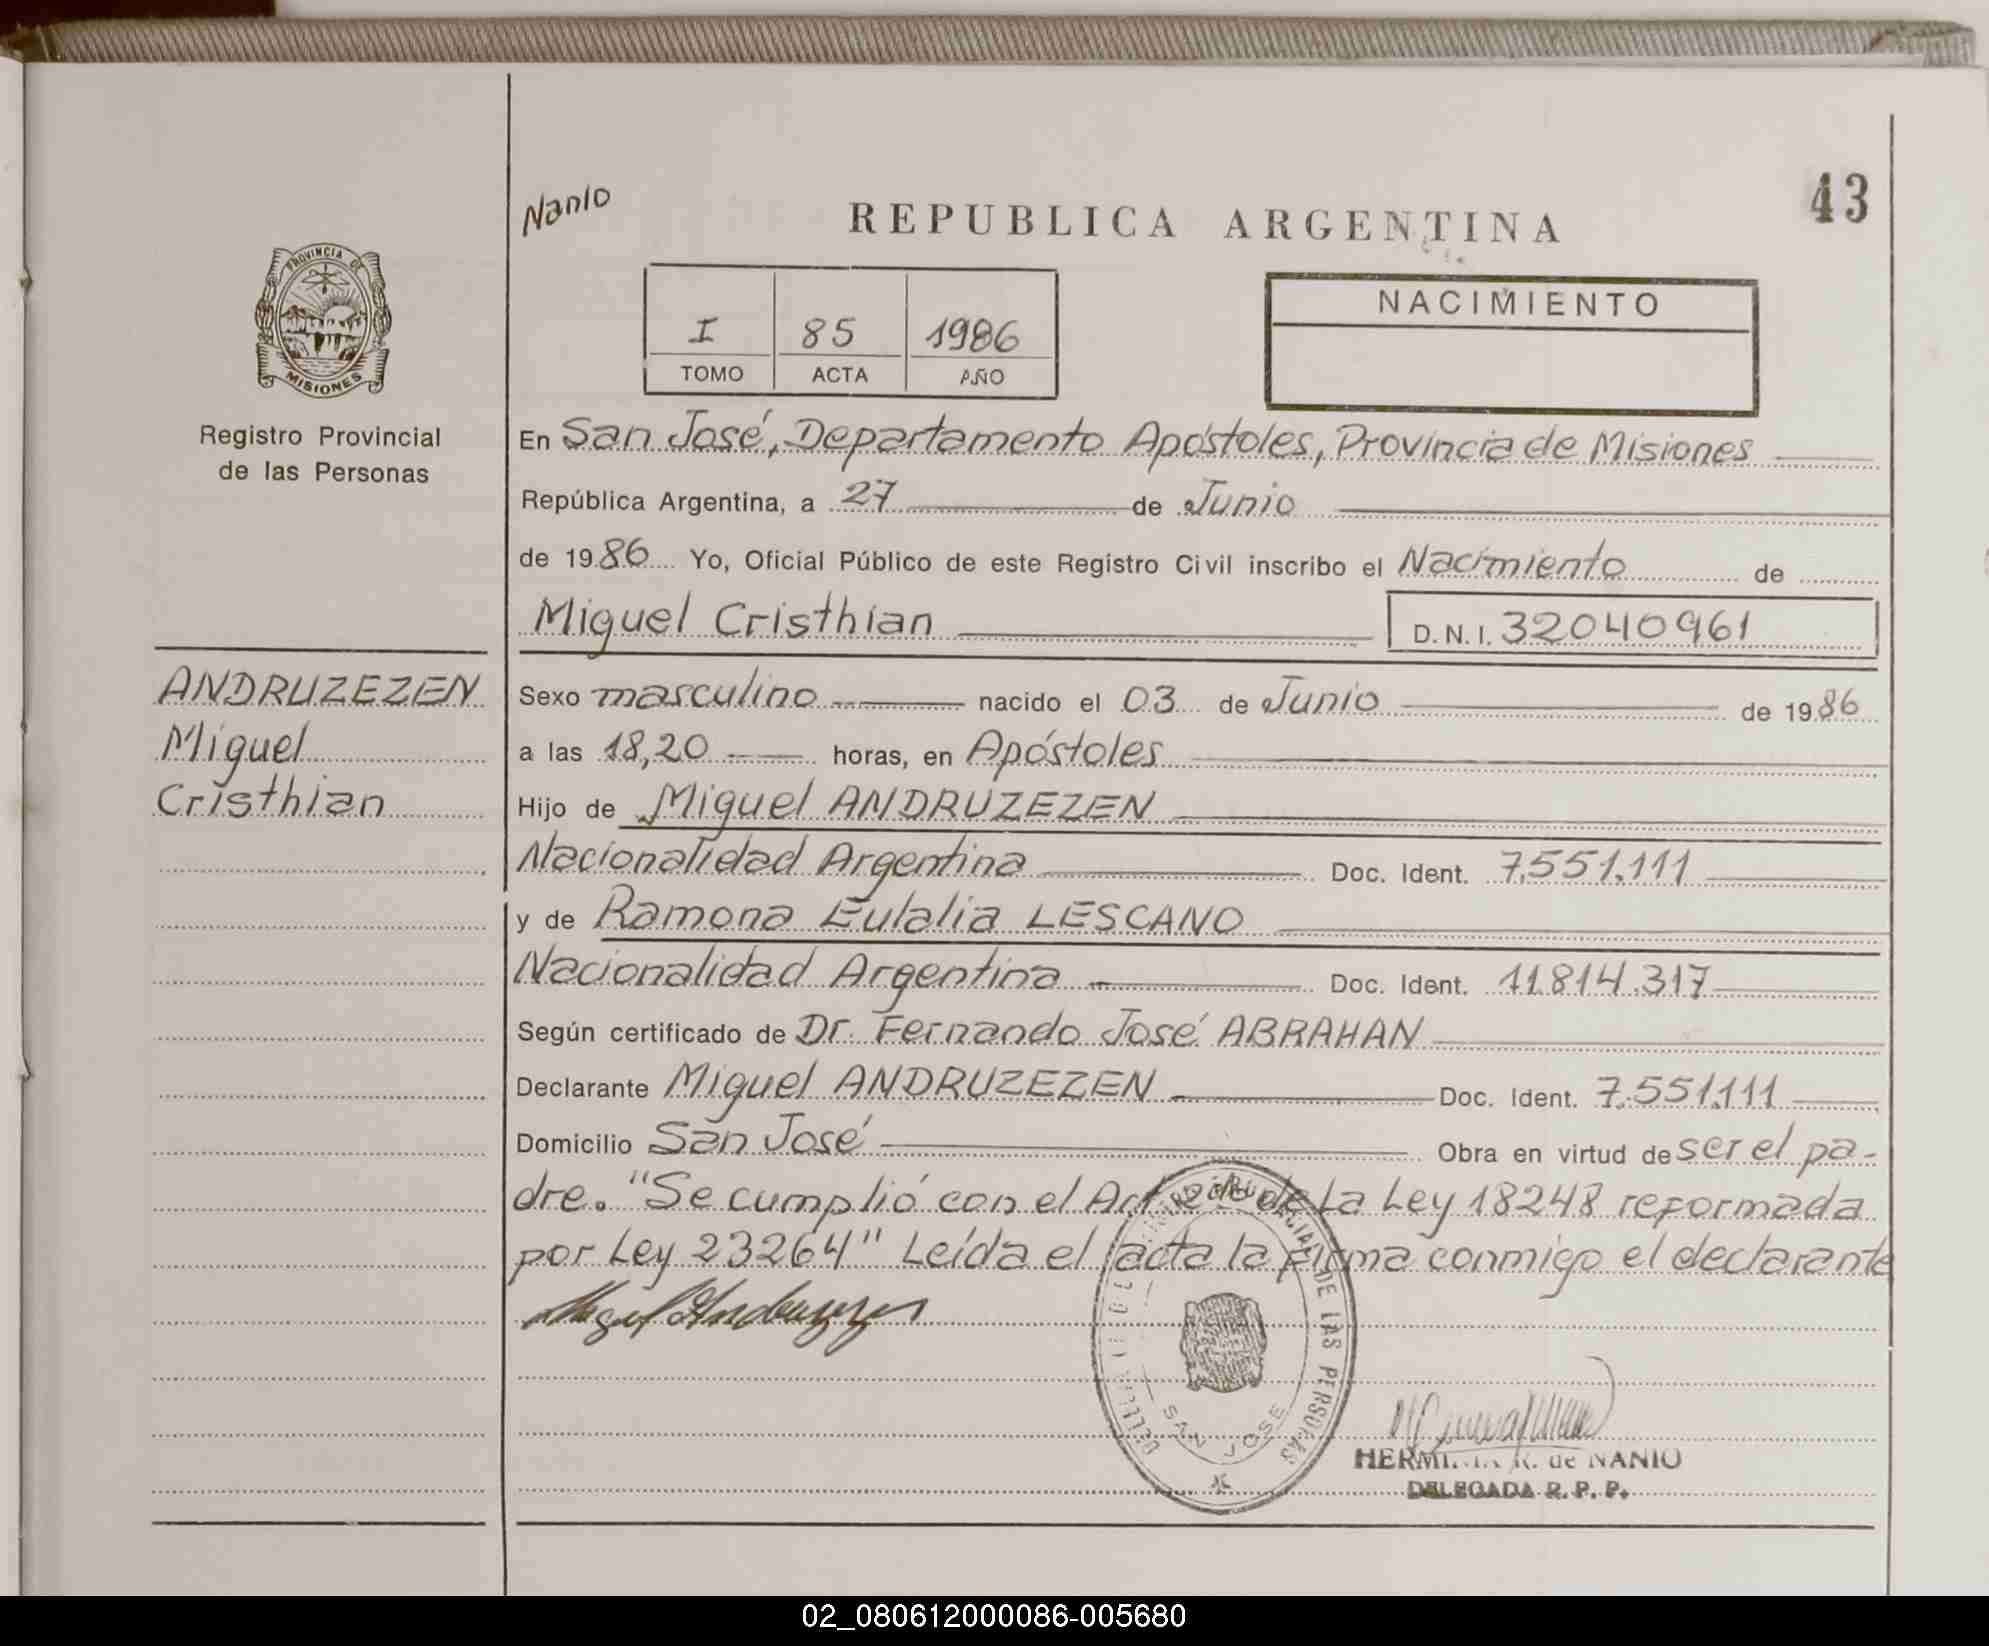 43
Nanio
REPUBLICA ARGENTINA
PROVINCIA DE
MISIONES
Registro Provincial
de las Personas
I 85 1986
TOMO ACTA AÑO
NACIMIENTO
En San José, Departamento Apóstoles, Provincia de Misiones
República Argentina, a 27 de Junio
de 1986 Yo, Oficial Público de este Registro Civil inscribo el Nacimiento de
Miguel Cristhian D.N.I. 32040961
ANDRUZEZEN
Miguel
Cristhian
Sexo masculino nacido el 03 de Junio de 1986
a las 18,20 horas, en Apóstoles
Hijo de Miguel ANDRUZEZEN
Nacionalidad Argentina Doc. Ident. 7.551.111
y de Ramona Eulalia LESCANO
Nacionalidad Argentina Doc. Ident. 11.814.317
Según certificado de Dr. Fernando José ABRAHAN
Declarante Miguel ANDRUZEZEN Doc. Ident. 7.551.111
Domicilio San José Obra en virtud de ser el pa-
dre. "Se cumplió con el Art 2do de La Ley 18248 reformada
por Ley 23264" Leída el acta la firma conmigo el declarante
DE LAS PERSONAS
SAN JOSE
R. de NANIO
DELEGADA R. P. P.
02_080612000086-005680